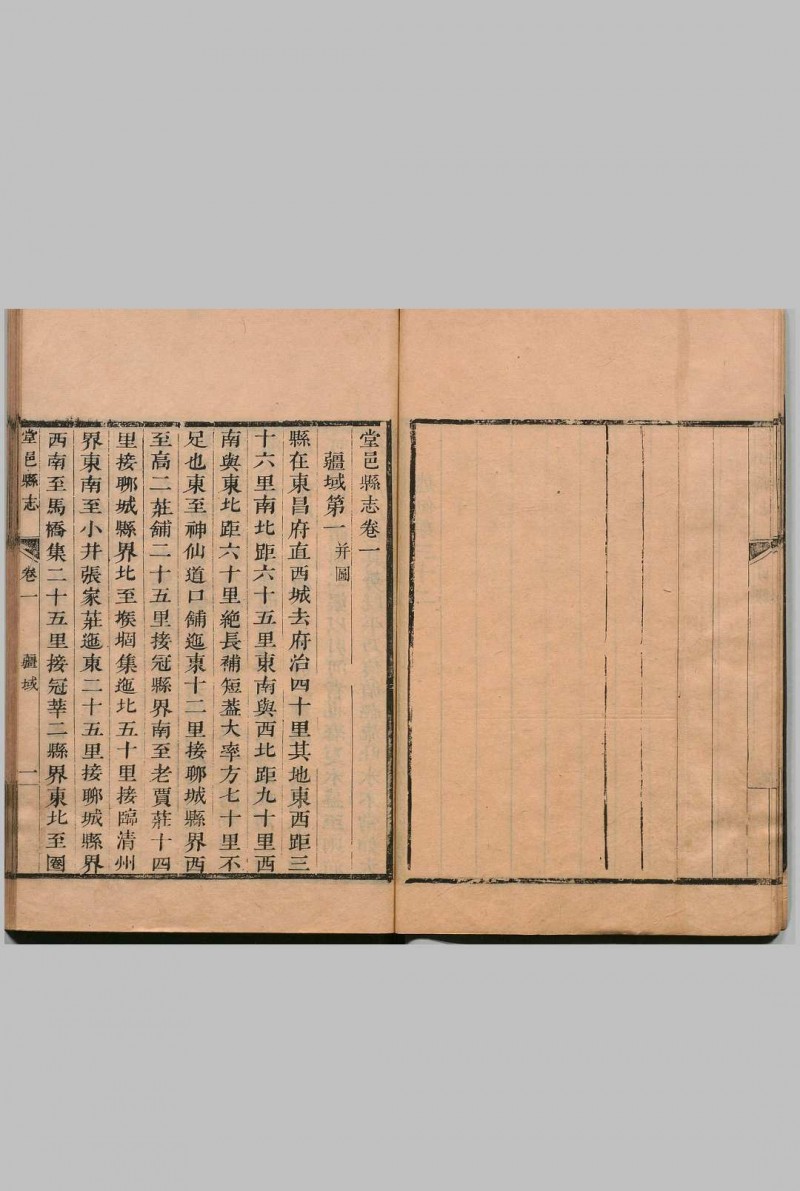 堂邑縣志卷一
疆域第一 并圖
縣在東昌府直西城去府治四十里其地東西距三
十六里南北距六十五里東南與西北距九十里西
南與東北距六十里絶長補短葢大率方七十里不
足也東至神仙道口舖迤東十二里接聊城縣界西
至高二莊舖二十五里接冠縣界南至老賈莊十四
里接聊城縣界北至堠堌集迤北五十里接臨清州
界東南至小井張家莊迤東二十五里接聊城縣界
西南至馬橋集二十五里接冠莘二縣界東北至圈
堂邑縣志 卷一 疆域 一